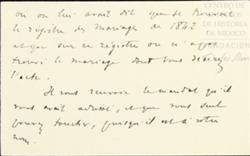 ou on lui avait dit que se trouvait
le registre des mariages de 1842
et que sur ce registre on a
trouvé le mariage dont vous
l'acte.
Il vous renvoie le mandat qu'il
vous avait adressé, et que vous seul
pouvez toucher, puisqu'il est à votre
nom.
CENTRO DE
DE HISTORIA
DE MEXICO
FUNDACIÓN